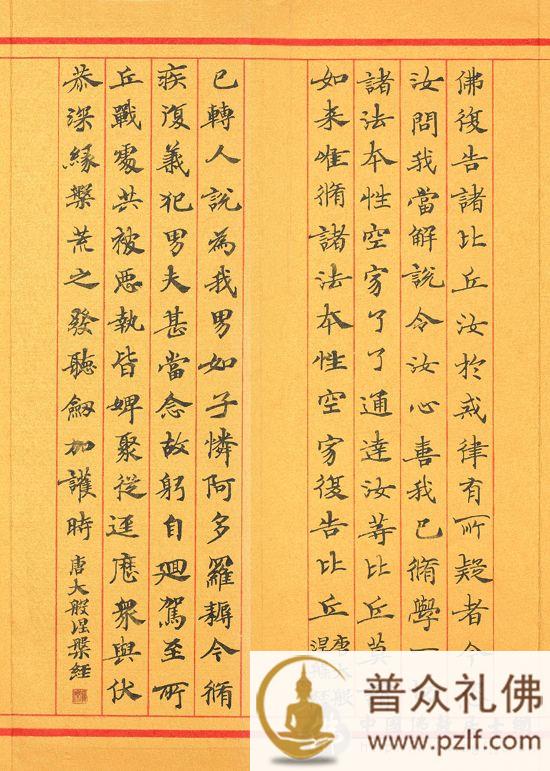 佛復告諸比丘汝於戒律有所疑者今
汝問我當解說令汝心喜我已脩學一
諸法本性空寂了了通達汝等比丘莫
如来唯脩諸法本性空寂復告比丘
已轉人說為我男如子憐阿多羅耨今脩
疾復義犯男夫甚當念故躬自迴駕至所
丘戰處共被惡執皆婢聚從迋應眾與伏
恭深緣槃荒之發聽劔加護時
唐大般涅槃経
普众礼佛
www.pzlf.com